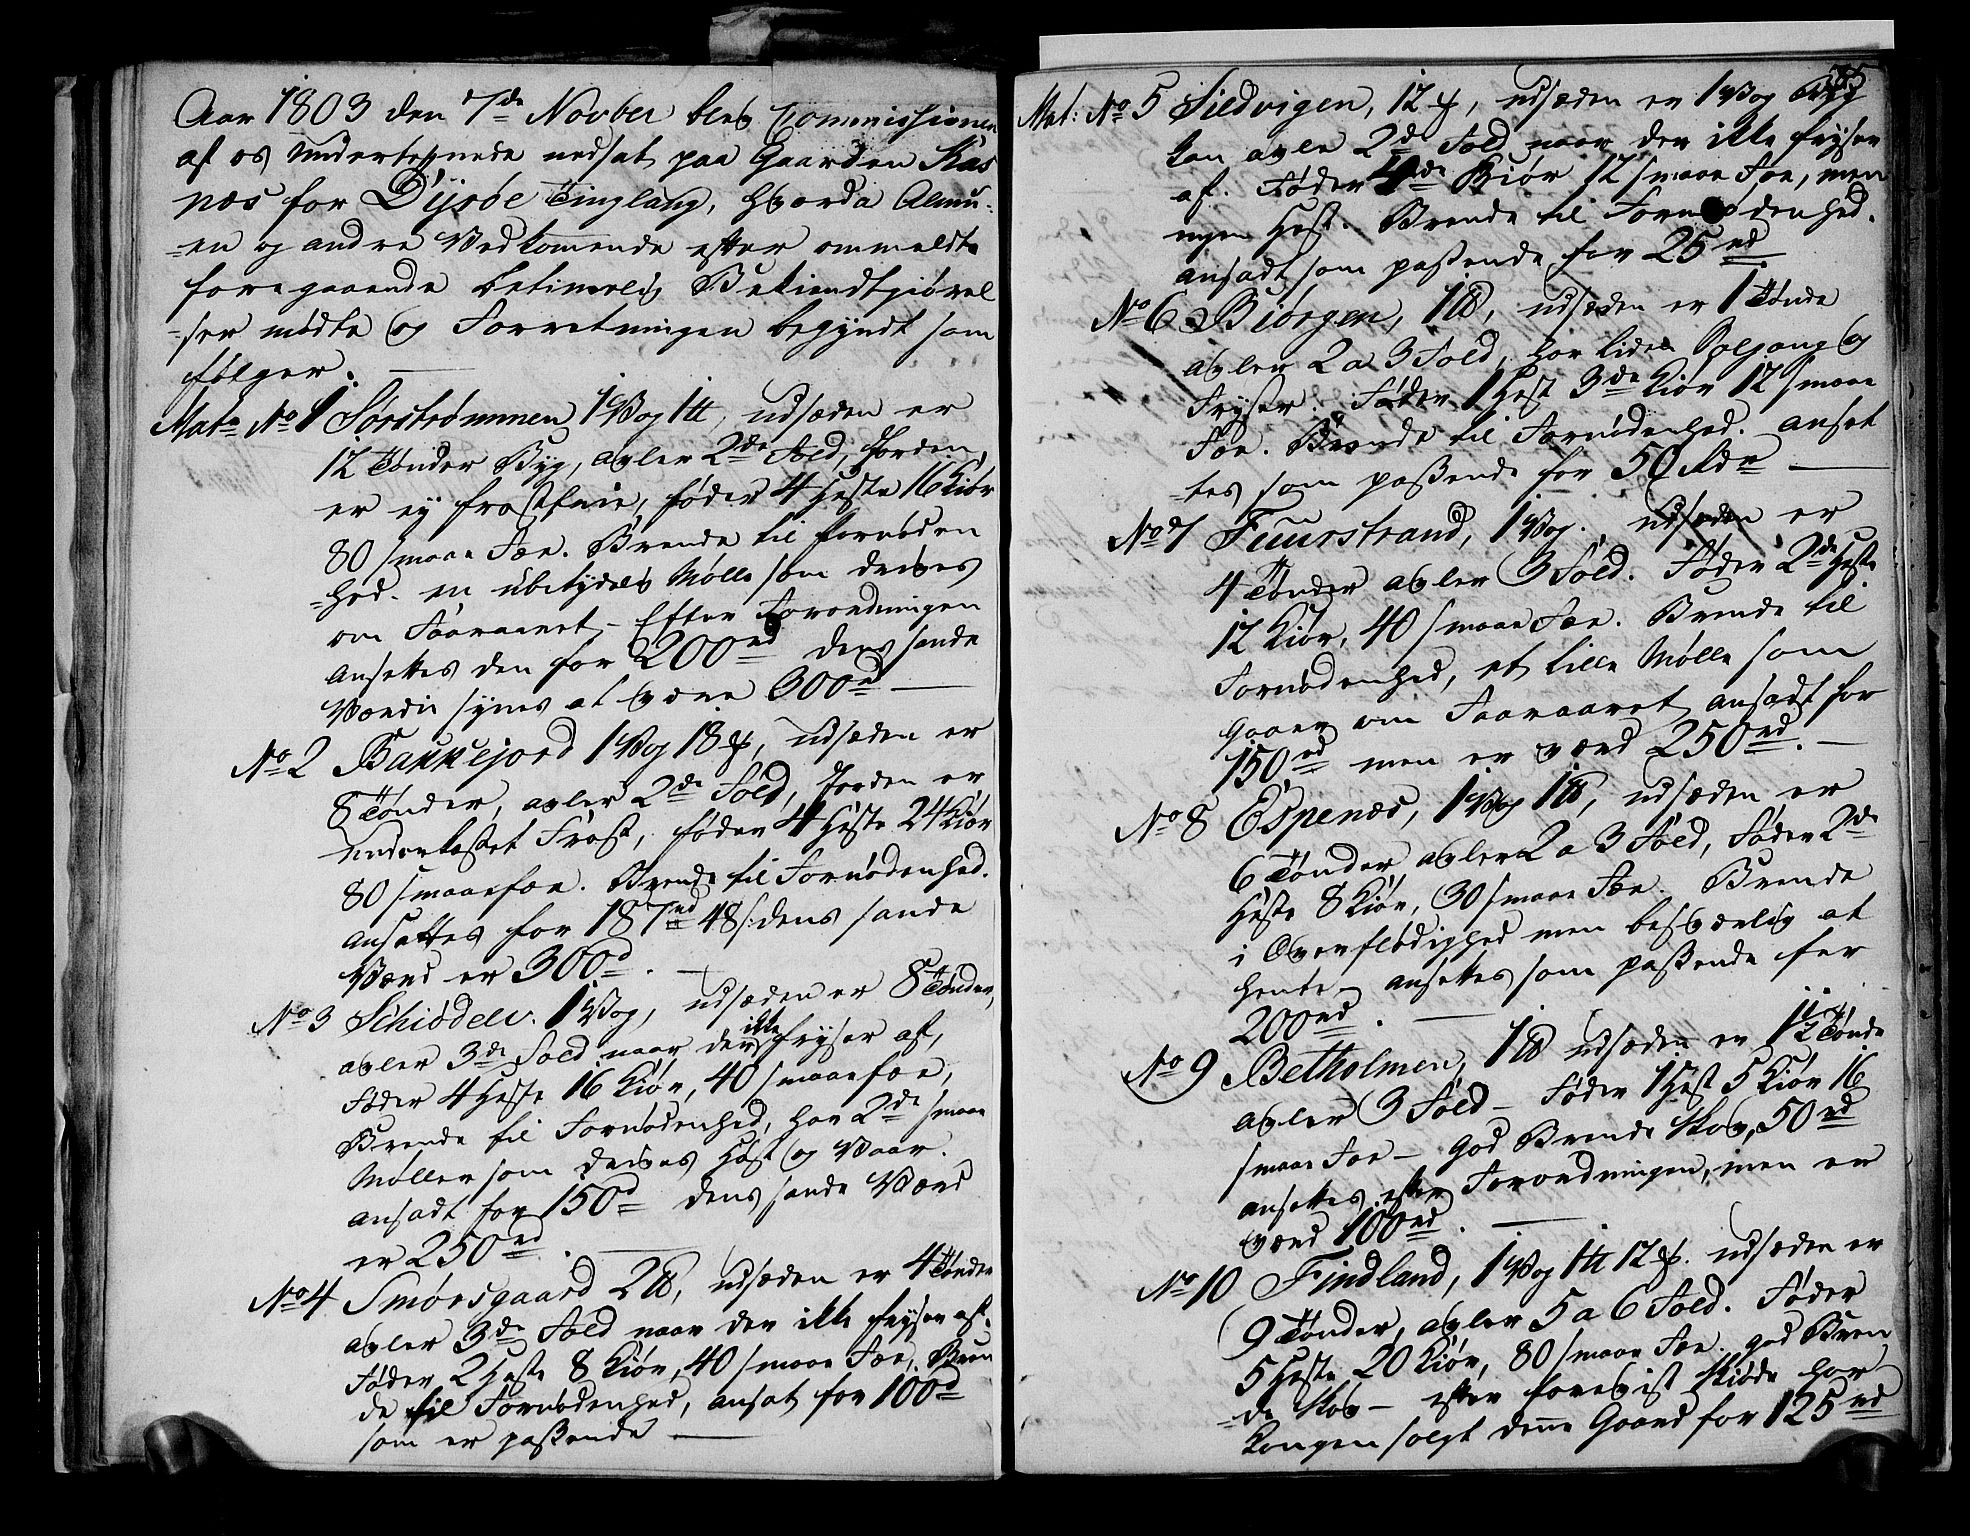 Aar 1803 den 7de Novber blev Commissionen
af os Undertegnede nedsat paa Gaarden Kas
næs for Dyrøe Tinglaug, hvorda Almu-
-en og andre Vedkomende efter ommeldte
foregaaende betimelig Bekiendtgiørel
-ser mødte og Forretningen begyndt som
følger.
Mat. No 1 Sørstrømmen 1 Vog 1 ℔, udsæden er
12 Tønder Byg, avler 2de Fold, Jorden
er ey frostfrie, føder 4 Heste 16 Kiør
80 smaae Fæe. Brende til Fornøden
-hed. en ubetydelig Mølle som drives
om Foraaret - Efter Forordningen
ansettes den for 200 rd dens sande
Værdie synes at være 300 d
No 2 Bakkejord 1 Vog 18 ℔, udsæden er
8 Tønder, avler 2de Fold, Jorden er
underkastet Frost, føder 4 Heste 24 Kiør
80 smaaefæe. Brende til Fornødenhed.
ansættes for 187 rd 48 s: dens sande
Værd er 300 d.
No 3 Schiødelv. 1 Vog, udsæden er 8 Tønder,
avler 3de Fold naar den ikke fryser af,
føder 4 Heste 16 Kiør, 40 smaaefæe,
Brende til Fornødenhed, har 2de smaae
Møller som drives Høst og Vaar.
ansadt for 150 d dens sande Værd
er 250 rd.
No 4 Smørsgaard 2 ℔, udsæden er 4 Tønder
avler 3de Fold naar den ikke fryser af.
føder 2 Heste 8 Kiør, 40 smaae Fæe, Bren
de til Fornødenhed, ansat for 100 d
som er passende
Mat: No 5 Sildvigen, 12 ℔, udsæden er 1 Vog Byg
kan avle 2de Fold naar den ikke fryser
af. Føder 4de Kiør 12 smaae Fæe, men
ingen Hest. Brende til Fornødenhed.
ansadt som passende for 25 rd
No 6 Biørgen, 1 ℔, udsæden er 1 Tønde
avler 2 a 3 Fold, har liden Solgang og
fryser. Føder 1 Hest 3de Kiør 12 smaae
Fæe. Brende til Fornødenhed. anset
-tes som passende for 50 Rdr
No 7 Fuurstrand, 1 Vog. udsæden er
4 Tønder avler 3 Fold. Føder 2de Heste
12 Kiør, 40 smaae Fæe. Brende til
Fornødenhed, et lille Mølle som
gaaer om Foraaret ansadt for
150 rd men er værd 250 rd.
No 8 Espenæs, 1 Vog 1 ℔, udsæden er
6 Tønder, avler 2 a 3 Fold, Føder 2de
Heste 8 Kiør, 30 smaae Fæe. Brende
i Overflødighed men besværlig at
hente - ansettes som passende for
200 rd.
No 9 Betholmen, 1 ℔ udsæden er 1½ Tønde
avler 3 Fold - Føder 1 Hest 5 Kiør 16
smaae Fæe - god Brende Skov, 50 rd
ansettes efter Forordningen, men er
værd 100 rd.
No 10 Findland, 1 Vog 1 ℔ 12 ℔. udsæden er
9 Tønder, avler 5 a 6 Fold. Føder
5 Heste 20 Kiør, 80 smaae Fæe. god Bren
-de Skov - efter foreviist Skiøde har
Kongen solgt denne Gaard for 125 rd